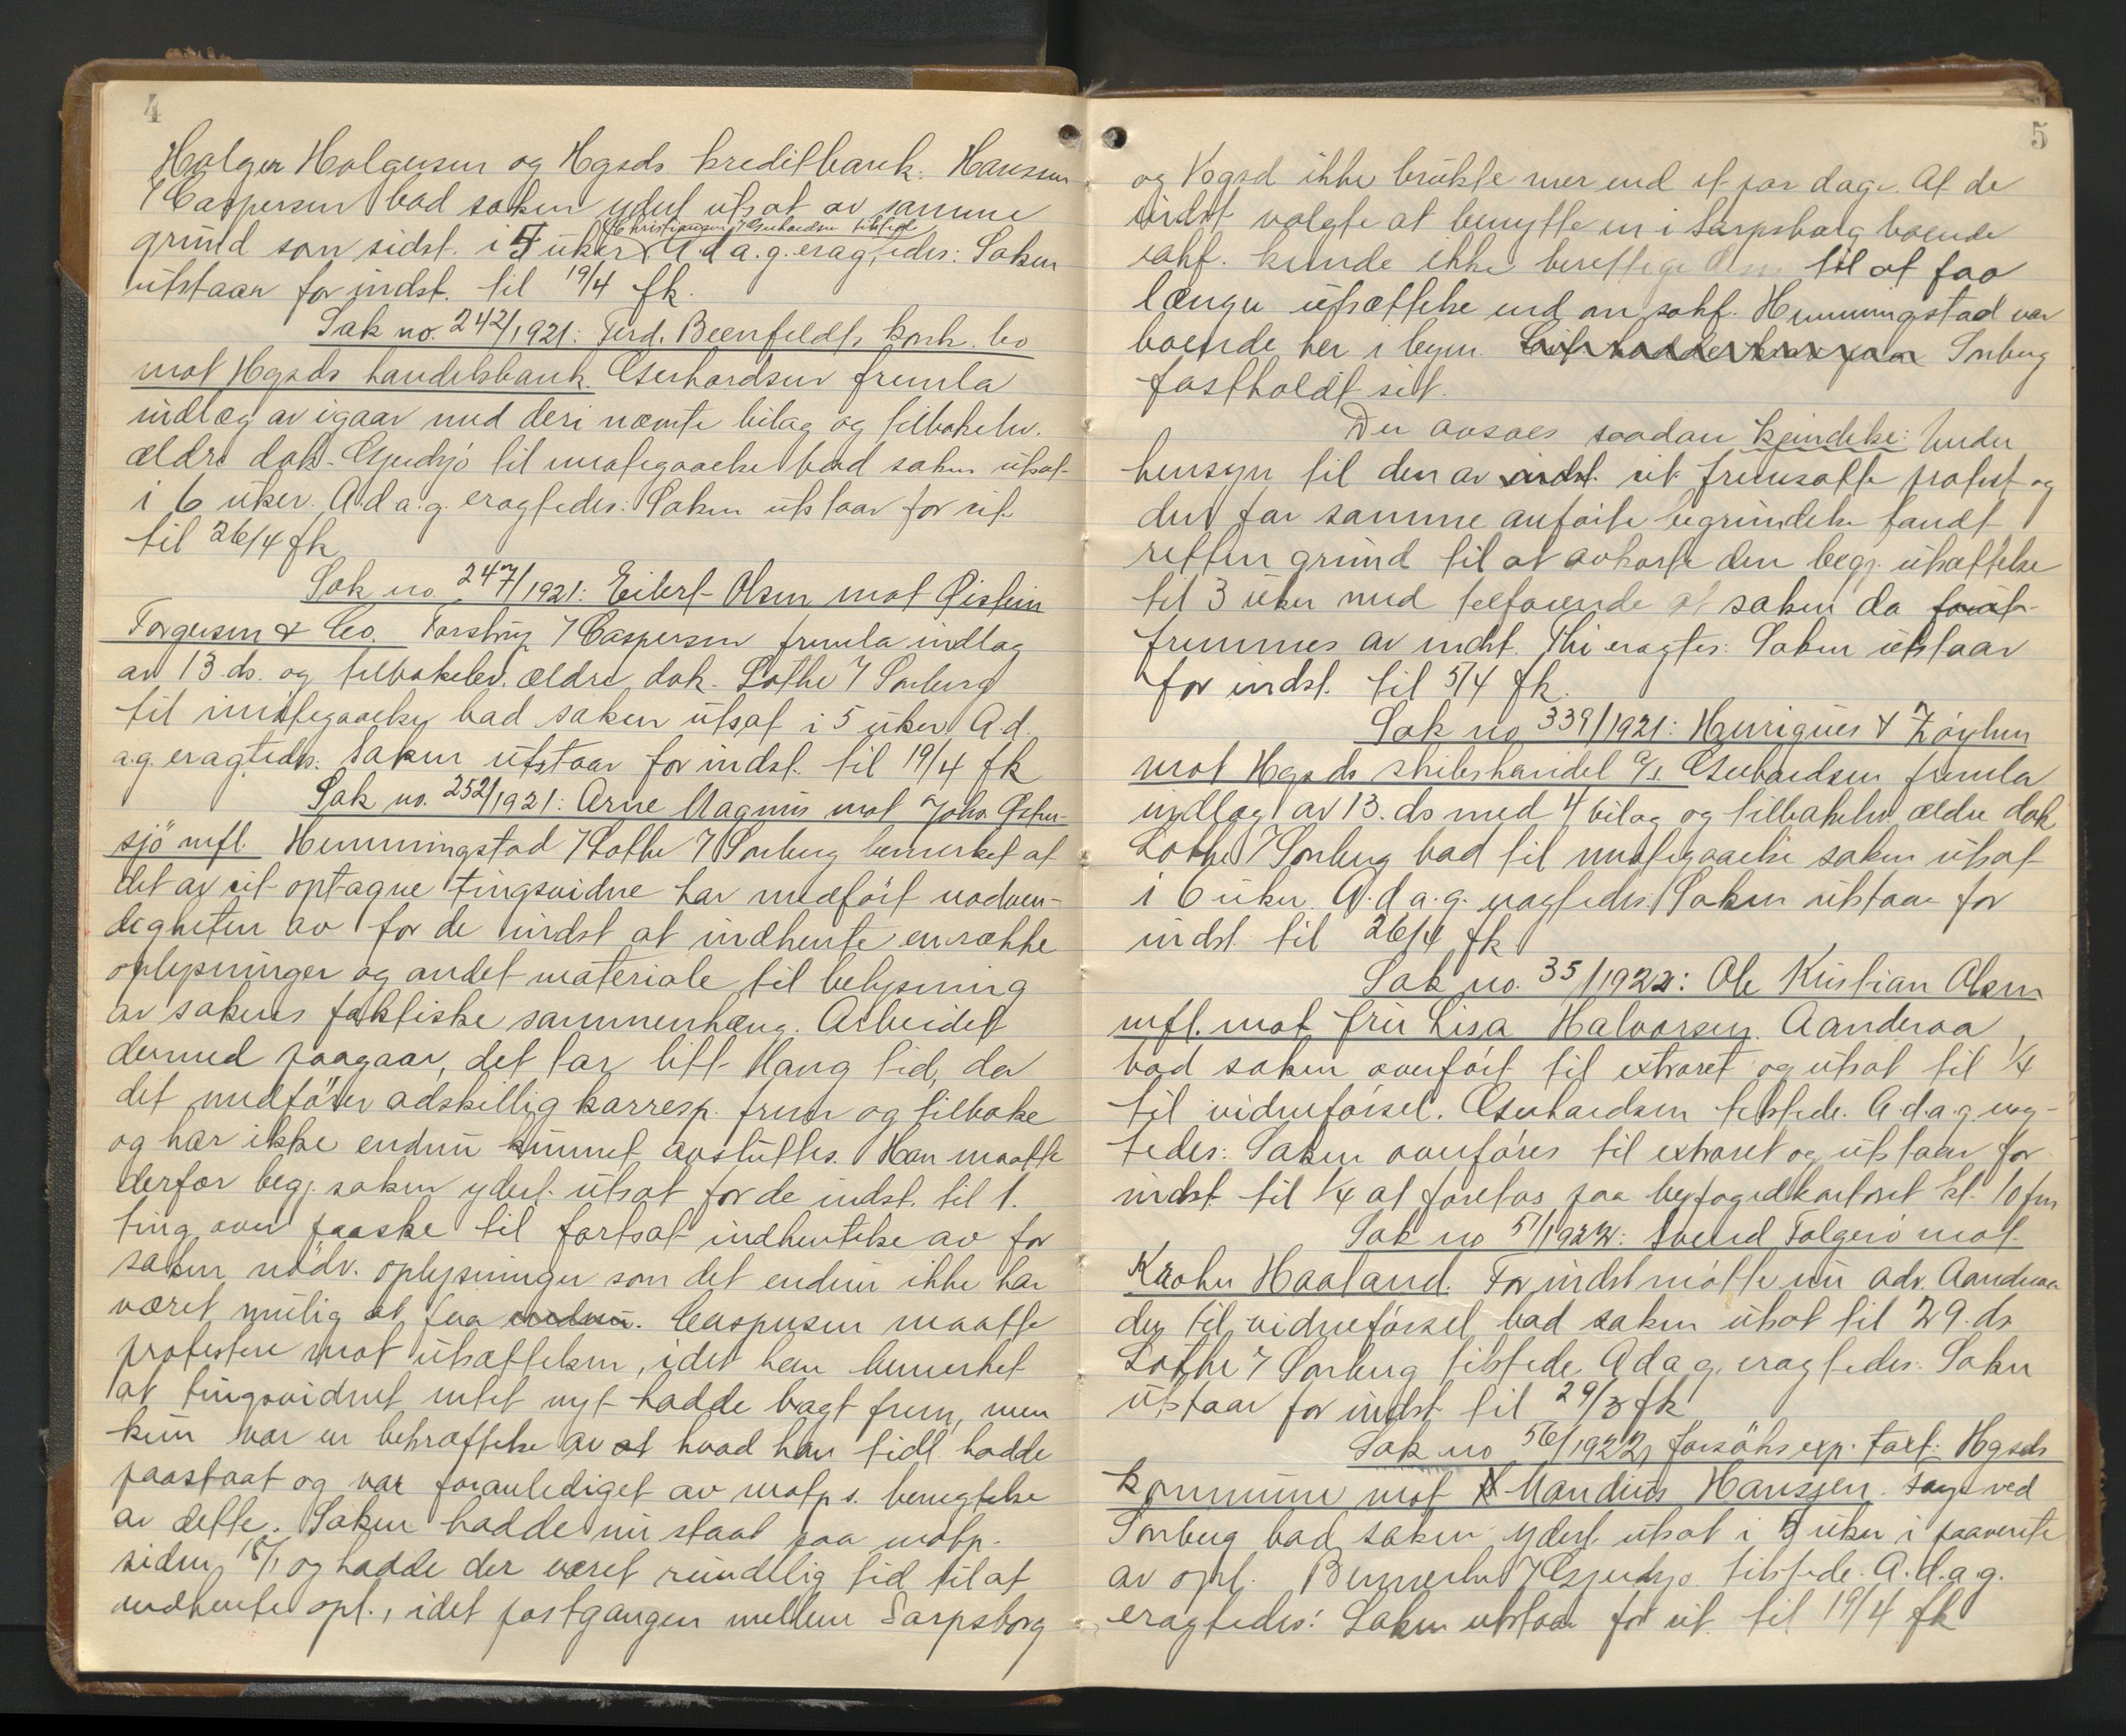 4
Holger Holgersen og Hgsds kreditbank. Hanssen
/ Caspersen bad saken yderl. utsat av samme
Christiansen / Gerhardsen tilstede
grund som sidst. i 5 uker. A. d a. g. eragtedes: Saken
utstaar for indst. til 19/4 fk.
Sak no. 242/1921: Ferd. Beenfeldts konk. bo
mot Hgsds handelsbank. Gerhardsen fremla
indlæg av igaar med deri nævnte bilag og tilbakelev.
ældre dok. Gjerdsjø til imøtegaaelse bad saken utsat
i 6 uker. A.d a.g. eragtedes: Saken utstaar for cit.
til 26/4 fk
Sak no. 247/1921: Eilert Olsen mot Øistein
Torgersen & Co. Forstrøm / Caspersen fremla indlæg
av 13 ds. og tilbakelev. ældre dok. Lothe / Sonberg
til imøtegaaelse bad saken utsat i 5 uker A.d.
a.g. eragtedes: Saken utstaar for indst. til 19/4 fk
Sak no. 252/1921: Arne Magnus mot Johs Østen-
sjø mfl. Hemmingstad / Lothe / Sonberg bemerket at
det av cit. optagne tingsvidne har medført nødven-
digheten av for de indst at indhente en række
oplysninger og andet materiale til belysning
av sakens faktiske sammenhæng. Arbeidet
dermed paagaar, det tar litt lang tid, da
det medfører adskillig korresp. frem og tilbake
og har ikke endnu kunnet avsluttes. Han maatte
derfor begj. saken yderl. utsat for de indst. til 1.
ting over paaske til fortsat indhentelse av for
saken nødv. oplysninger som det endnu ikke har
været mulig at faa endnu. Caspersen maatte
protestere mot utsættelsen, idet han bemerket
at tingsvidnet intet nyt hadde bragt frem, men
kun var en bekræftelse av at hvad han tidl. hadde
paastaat og var foranlediget av motp s. benegtelse
av dette. Saken hadde nu staat paa motp.
siden 18/1 og hadde der været rundelig tid til at
indhente opl., idet postgangen mellem Sarpsborg
5
og Hgsd ikke brukte mer end et par dage. At de
indst valgte at benytte en i Sarpsborg boende
sakf. kunde ikke berettige dem til at faa
længer utsættelse end om sakf. Hemmingstad var
boende her i byen. Sonberg
fastholdt sit.
Der avsaes saadan kjendelse: Under
hensyn til den av indst. cit. fremsatte protest og
den for samme anførte begrundelse fandt
retten grund til at avkorte den begj. utsættelse
til 3 uker med tilføiende at saken da forut-
fremmes av indst. Thi eragtes: Saken utstaar
for indst. til 5/4 fk.
Sak no 339/1921: Henriques & Zøylner
mot Hgsds skibshandel A/s. Gerhardsen fremla
indlæg av 13. ds med 4 bilag og tilbakelev. ældre dok
Lothe / Sonberg bad til imøtegaaelse saken utsat
i 6 uker. A. d a. g. eragtedes: Saken utstaar for
indst til 26/4 fk
Sak no. 35/1922: Ole Kristian Olsen
mfl. mot fru Lisa Halvorsen. Aanderaa
bad saken overført til extraret og utsat til 1/4
til vidneførsel. Gerhardsen tilstede. A.d.a.g. erag-
tedes: Saken overføres til extraret og utstaar for
indst til 1/4 at foretas paa byfogedkontoret kl. 10 fm
Sak no 51/1922: Svend Folgerø mot
Krohn Haaland. For indst møtte nu adv. Aanderaa
der til vidneførsel bad saken utsat til 29. ds
Lothe / Sonberg tilstede. A d a g. eragtedes: Saken
utstaar for indst til 29/3 fk
Sak no 56/1922, forsøks exp. forf: Hgsds
kommune mot Mandius Hanssen. Sagf. ved
Sonberg bad saken yderl. utsat i 5 uker i paavente
av opl. Bennerhe / Gjerdsjø tilstede. A. d. a g.
eragtedes: Saken utstaar for cit. til 19/4 fk